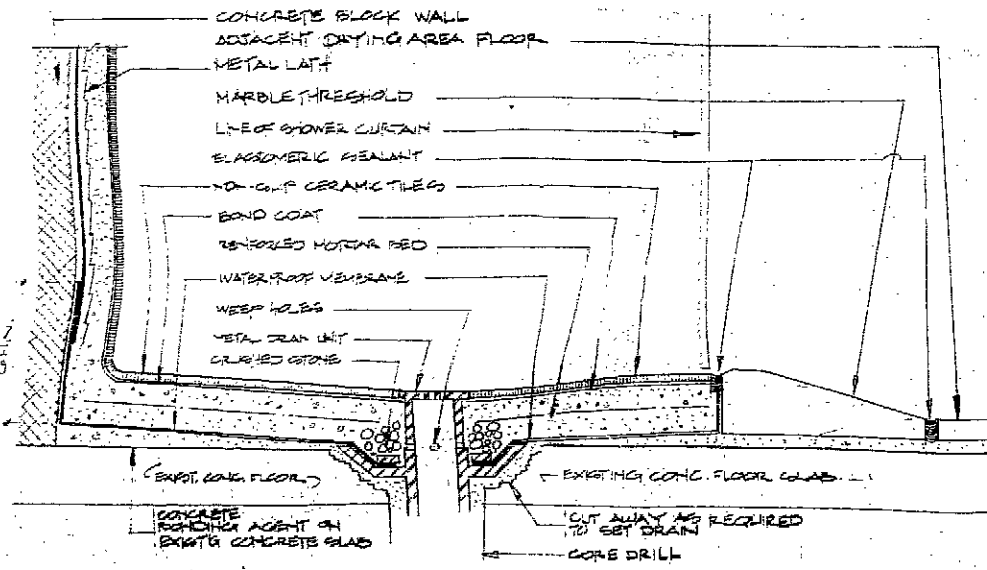 CONCRETE BLOCK WALL
ADJACENT DRYING AREA FLOOR
METAL LATH
MARBLE THRESHOLD
LINE OF SHOWER CURTAIN
ELASTOMERIC SEALANT
NON-SLIP CERAMIC TILES
BOND COAT
REINFORCED MORTAR BED
WATERPROOF MEMBRANE
WEEP HOLES
METAL DRAIN UNIT
CRUSHED STONE
(EXIST. CONC. FLOOR)
EXISTING CONC. FLOOR SLAB
CONCRETE
BONDING AGENT ON
EXIST'G CONCRETE SLAB
CUT AWAY AS REQUIRED
TO SET DRAIN
CORE DRILL